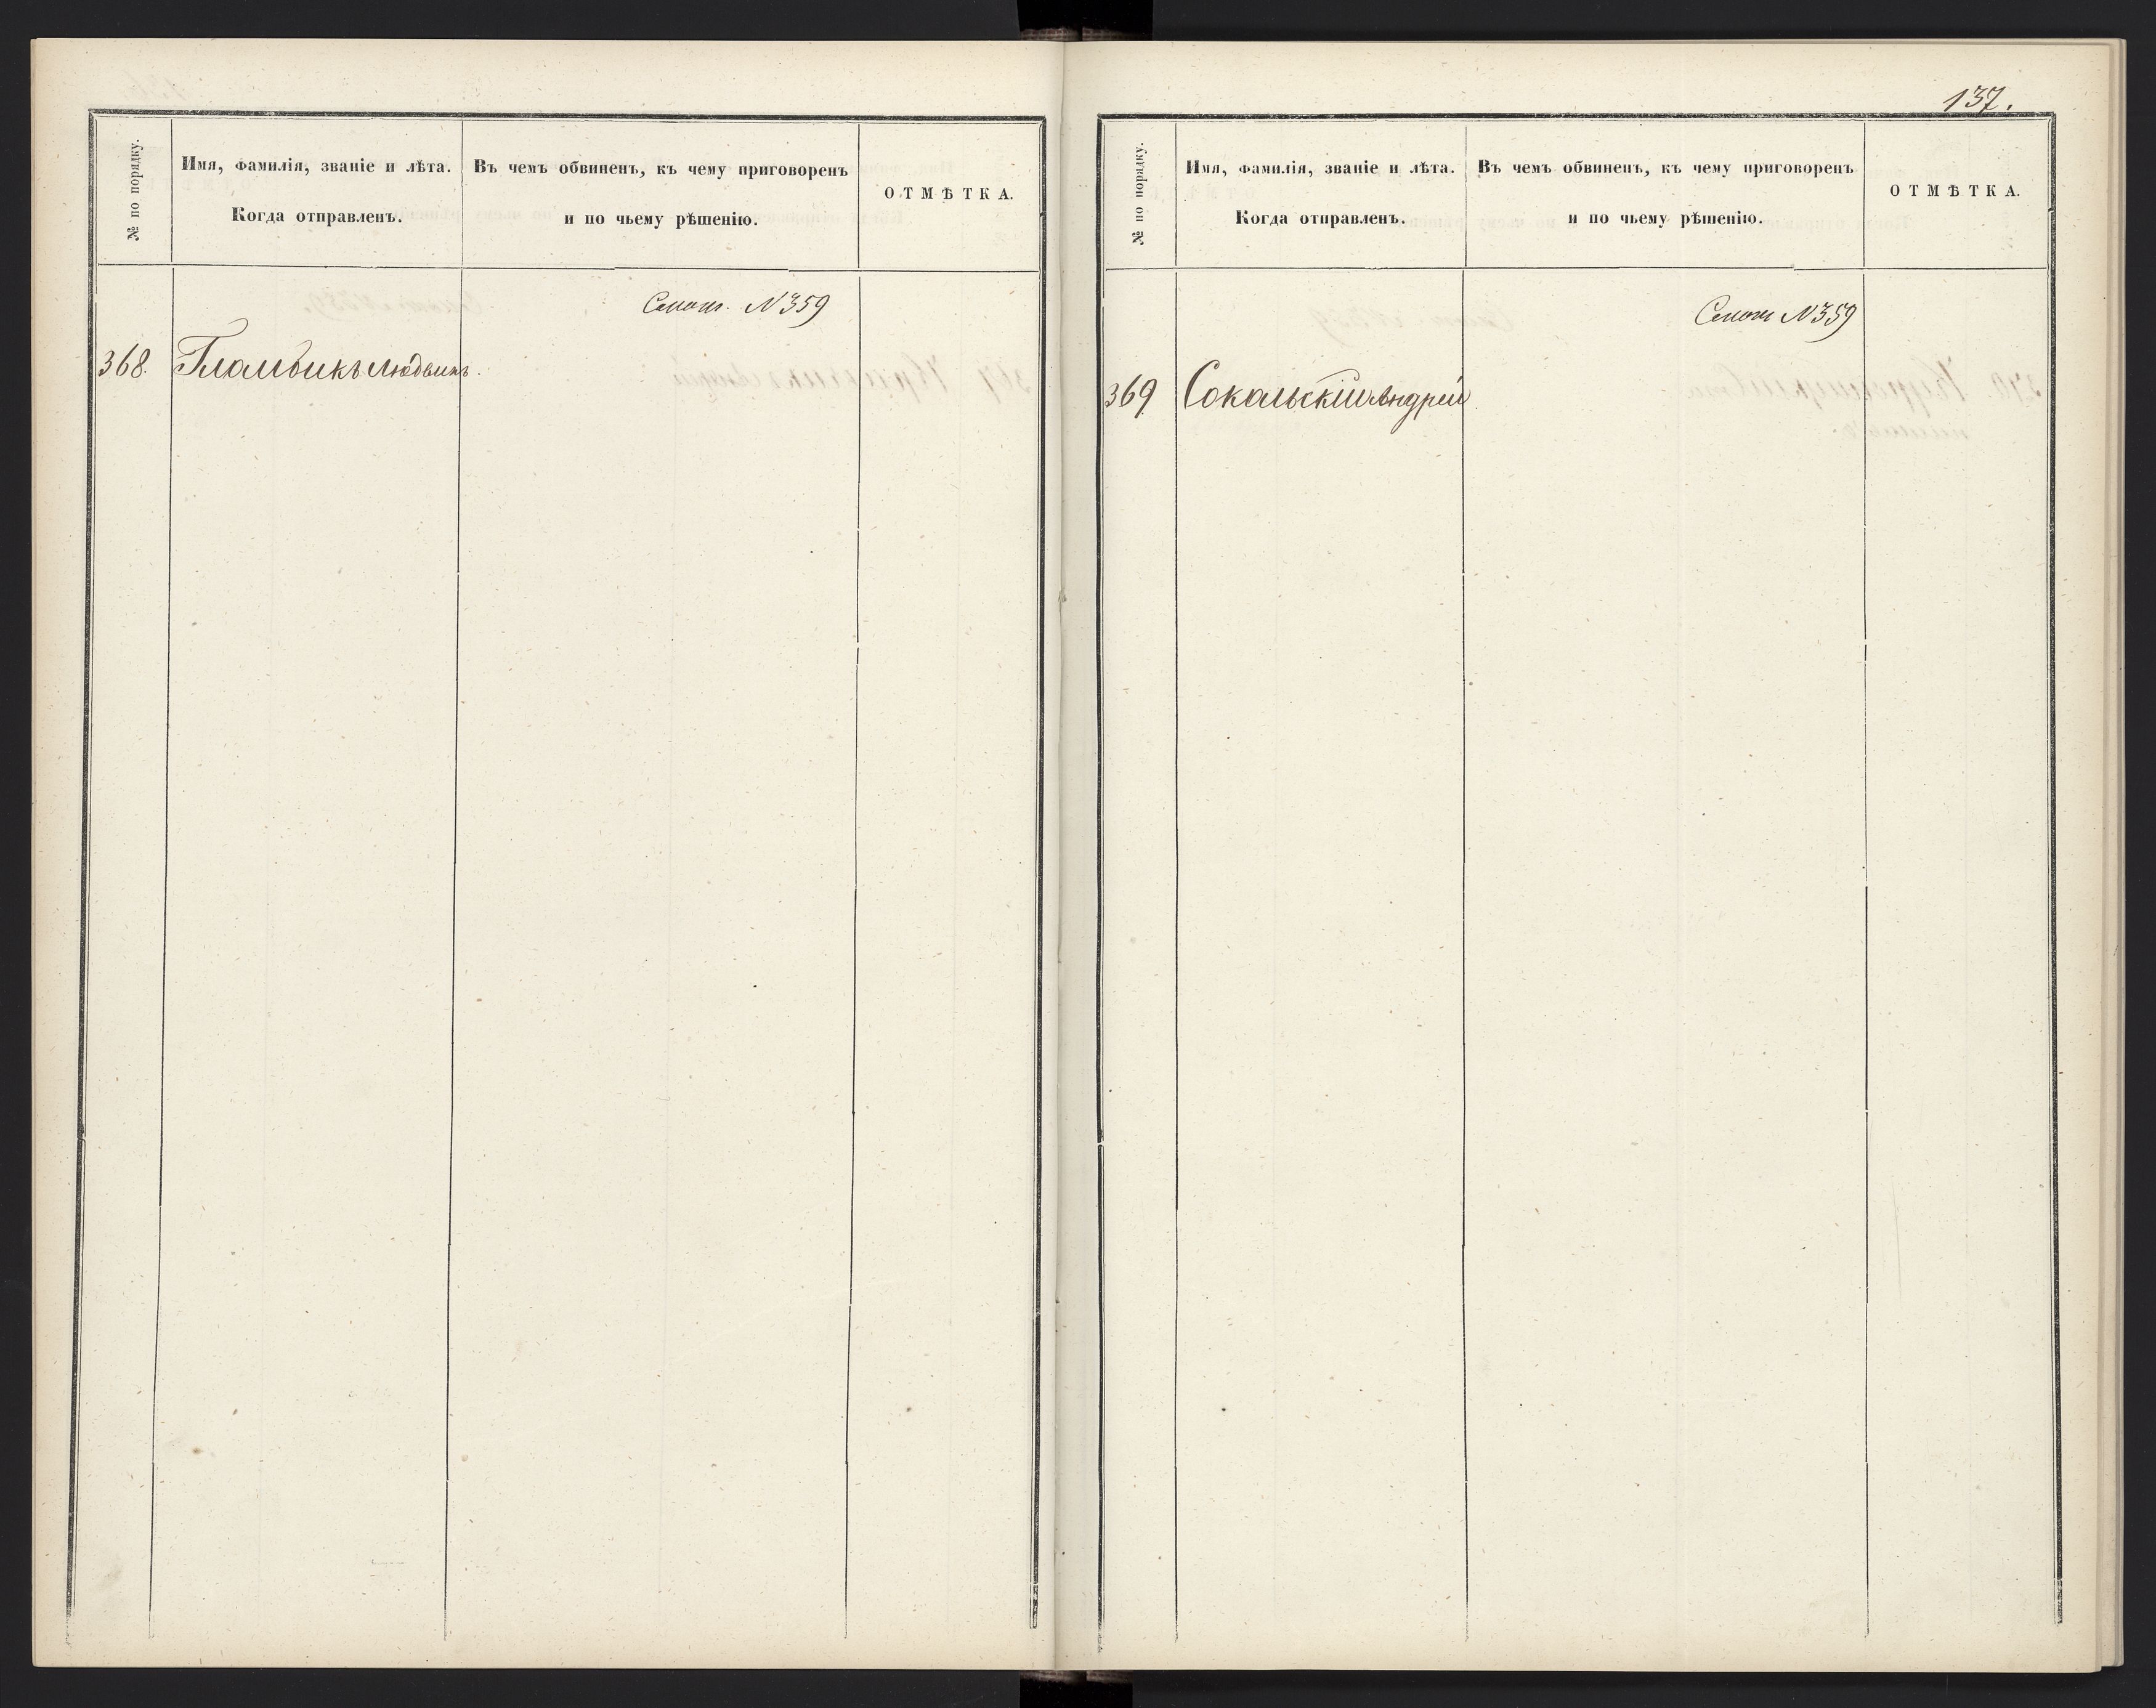 № по порядку.
Имя, Фамилія, званіе и лѣта.
Когда отправленъ.
Въ чемъ обвиненъ, къ чему приговоренъ
и по чьему рѣшенію.
ОТМѢТКА.
Смотр. N 359
368. Людвикъ.
137.
№ по порядку.
Имя, Фамилія, званіе и лѣта.
Когда отправленъ.
Въ чемъ обвиненъ, къ чему приговоренъ
и по чьему рѣшенію.
ОТМѢТКА.
Смотр N 359
369 Сокальскій Андрей